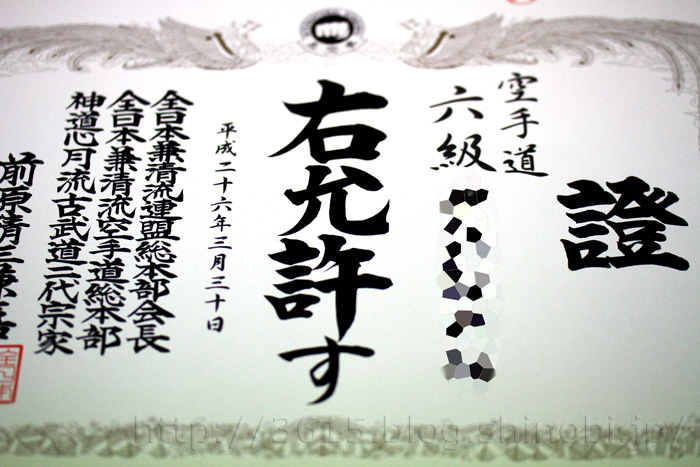 證
空手道
六級
右允許す
平成二十六年三月三十日
全日本兼清流連盟総本部会長
全日本兼清流空手道総本部
神道心月流古武道二代宗家
前原清三兼吉
http://3615.blog.shinobi.jp/